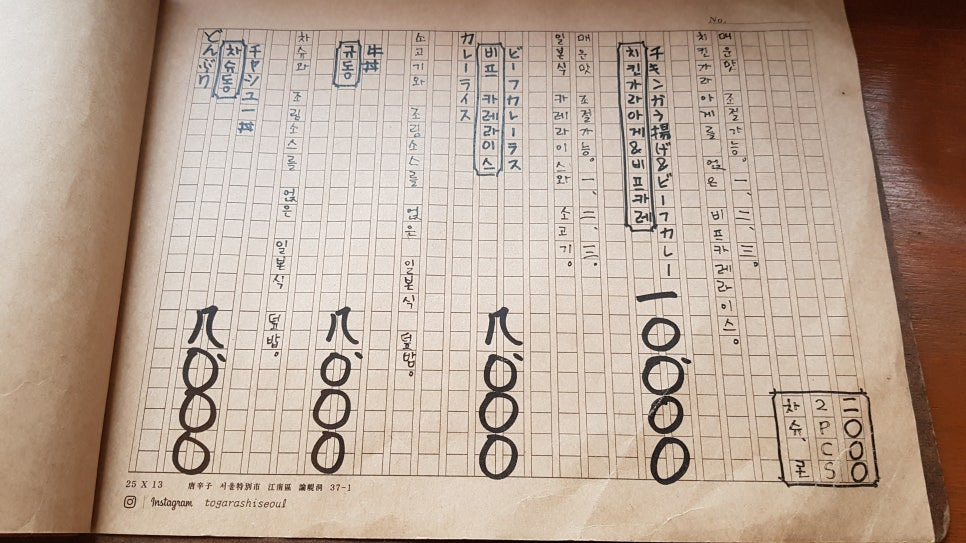 どんぶり
차슈동
チャシュー丼
八、〇〇〇
차슈와 조림소스를 얹은 일본식 덮밥。
규동
牛丼
八、〇〇〇
소고기와 조림소스를 얹은 일본식 덮밥。
カレーライス
비프 카레라이스
ビーフカレーラス
八、〇〇〇
일본식 카레라이스와 소고기。
매운맛 조절가능。 一、二、三。
치킨가라아게&비프카레
チキンガラ揚げ&ビーフカレー
一〇、〇〇〇
치킨가라아게를 얹은 비프카레라이스。
매운맛 조절가능。 一、二、三。
차슈、
2PCS
二〇〇〇
No.
25 X 13 唐辛子 서울特別市 江南區 論峴洞 37-1
Instagram togarashiseoul